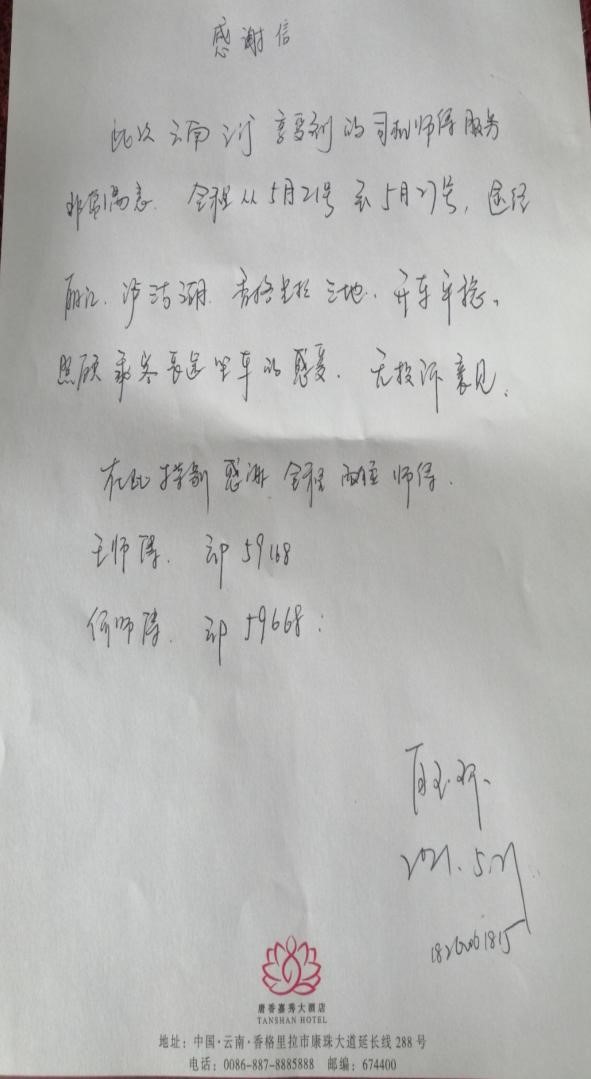 感谢信
此次云南之行享受到的司机师傅服务
非常满意. 全程从5月21号至5月27号, 途经
丽江. 泸沽湖. 香格里拉三地. 开车平稳、
照顾乘客长途坐车的感受. 无投诉意见.
在此特别感谢全程两位师傅.
王师傅. 云P 59168
何师傅. 云P 59668
2021.5.
唐香嘉秀大酒店
TANSHAN HOTEL
地址：中国·云南·香格里拉市康珠大道延长线 288 号
电话：0086-887-8885888 邮编：674400